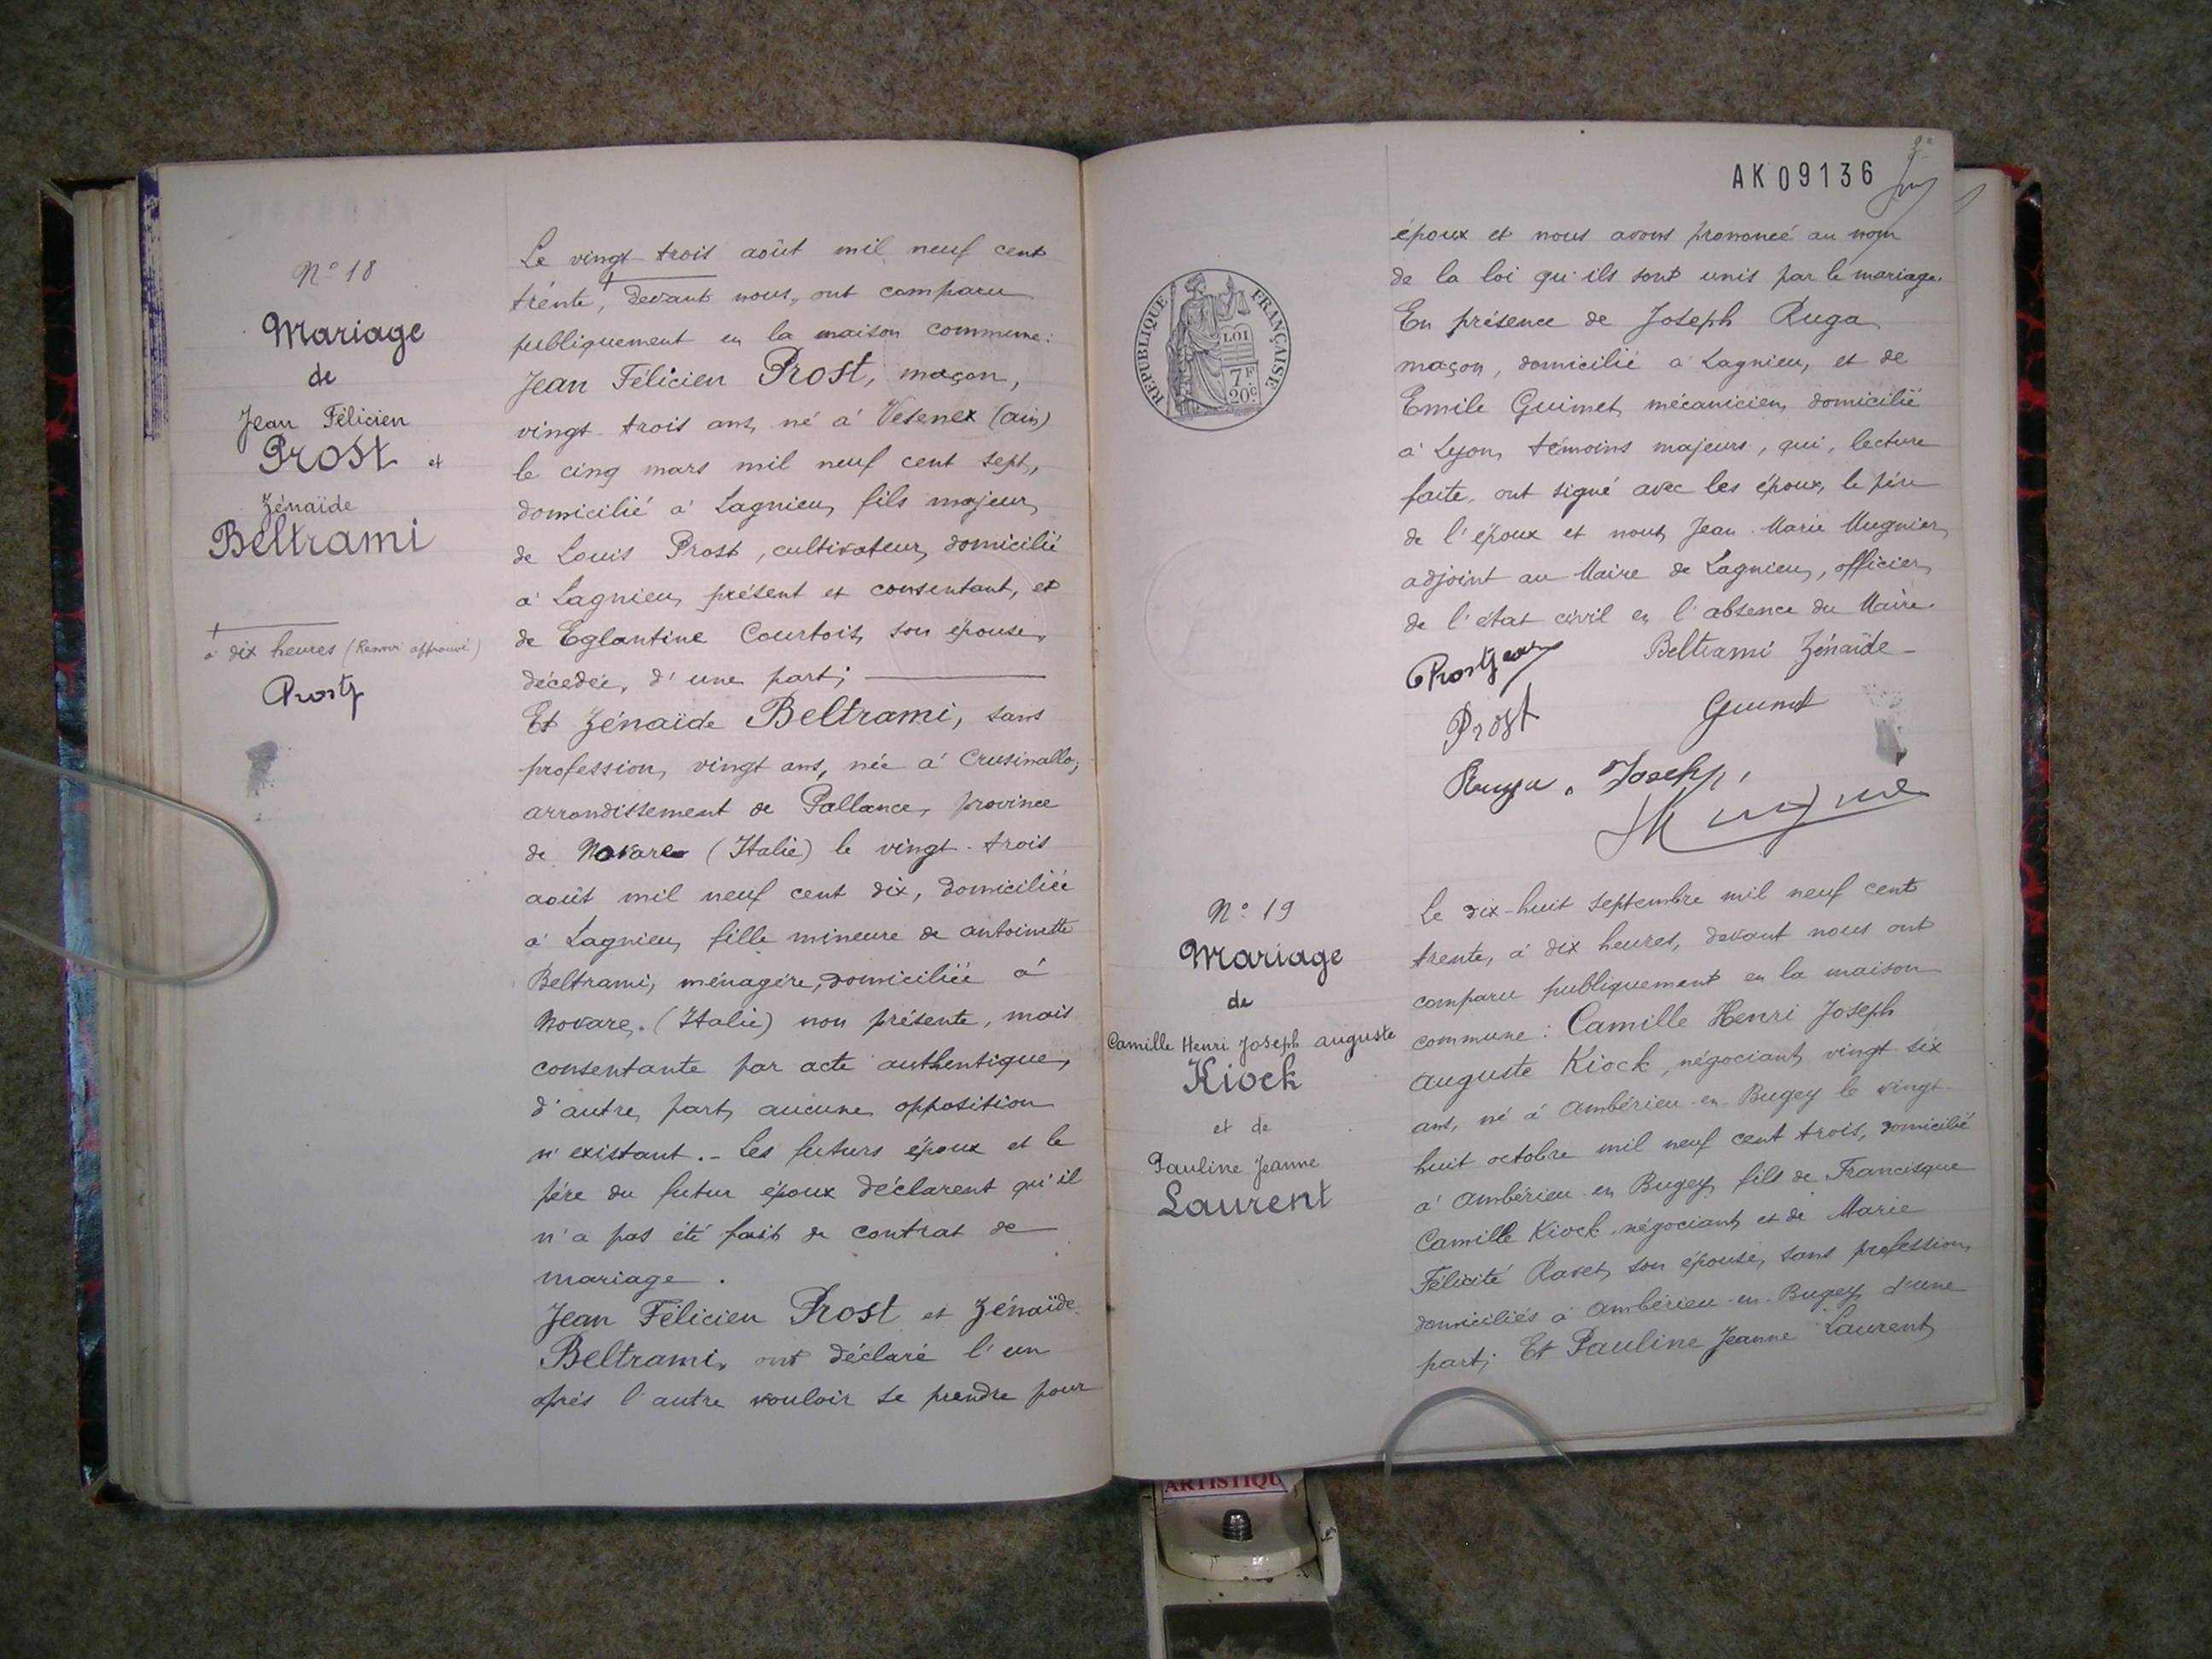 N° 18
Mariage
de
Jean Félicien
Prost et
Zénaïde
Beltrami
à dix heures (Renvoi approuvé)
Le vingt-trois août mil neuf cent
trente, devant nous, ont comparu
publiquement en la maison commune:
Jean Félicien Prost, maçon,
vingt-trois ans, né à Vesenex (Ain)
le cinq mars mil neuf cent sept,
domicilié à Lagnieu, fils majeur
de Louis Prost, cultivateur, domicilié
à Lagnieu, présent et consentant, et
de Eglantine Courtois, son épouse,
décédée, d'une part;
Et Zénaïde Beltrami, sans
profession, vingt ans, née à Crusinallo,
arrondissement de Pallance, province
de Novare (Italie) le vingt-trois
août mil neuf cent dix, domiciliée
à Lagnieu, fille mineure de antoinette
Beltrami, ménagère, domiciliée à
Novare, (Italie) non présente, mais
consentante par acte authentique,
d'autre part, aucune opposition
n'existant. - Les futurs époux et le
père du futur époux déclarent qu'il
n'a pas été fait de contrat de
mariage.
Jean Félicien Prost et Zénaïde
Beltrami, ont déclaré l'un
après l'autre vouloir se prendre pour
AK 09136
époux et nous avons prononcé au nom
de la loi qu'ils sont unis par le mariage.
En présence de Joseph Ruga
maçon, domicilié à Lagnieu, et de
Emile Guimet, mécanicien, domicilié
à Lyon, témoins majeurs, qui, lecture
faite, ont signé avec les époux, le père
de l'époux et nous, Jean Marie Mugnier,
adjoint au Maire de Lagnieu, officier
de l'état civil en l'absence du Maire.
Prost Jean Beltrami Zénaïde
Prost Guimet
Ruga. Joseph,
REPUBLIQUE FRANÇAISE
LOI
7F
20c
N° 19
Mariage
de
Camille Henri Joseph auguste
Kiock
et de
Pauline Jeanne
Laurent
Le dix-huit septembre mil neuf cent
trente, à dix heures, devant nous ont
comparu publiquement en la maison
commune: Camille Henri Joseph
auguste Kiock, négociant, vingt six
ans, né à Ambérieu-en-Bugey le vingt-
huit octobre mil neuf cent trois, domicilié
à Ambérieu-en-Bugey, fils de Francisque
Camille Kiock, négociant, et de Marie
Félicité Ravet, son épouse, sans profession,
domiciliés à Ambérieu-en-Bugey, d'une
part; Et Pauline Jeanne Laurent,
ARTISTIQU